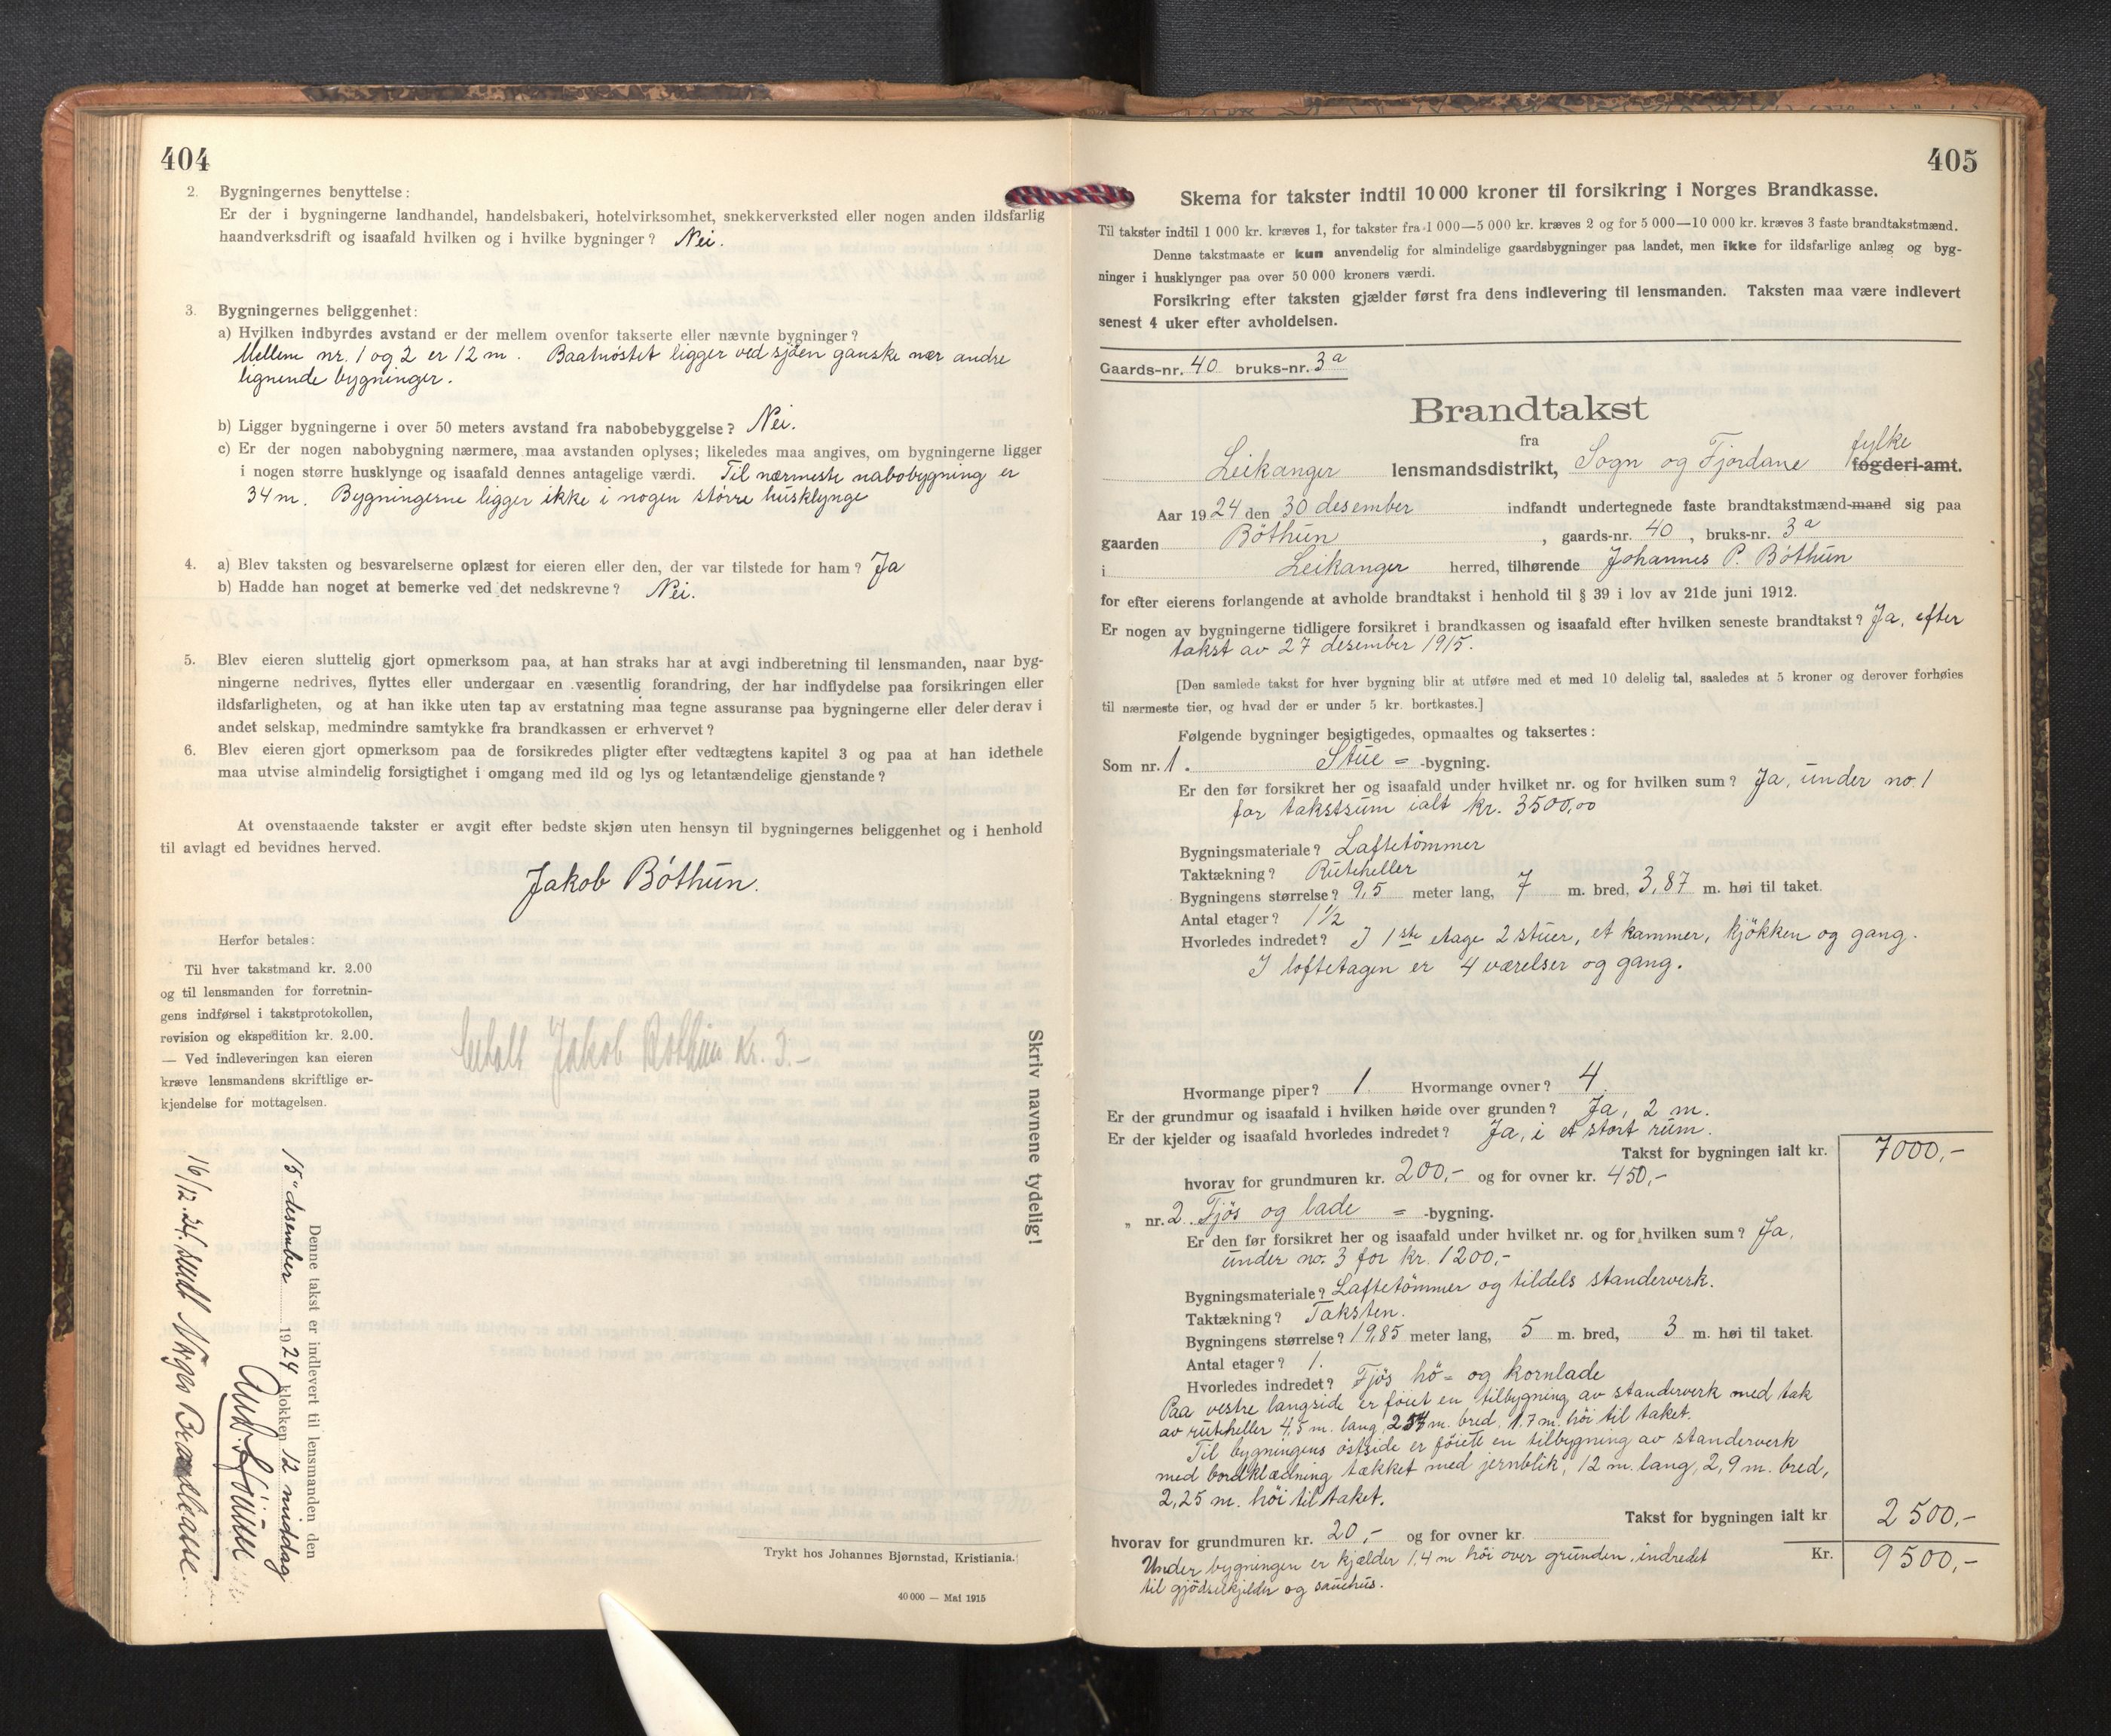 404
2. Bygningernes benyttelse:
Er der i bygningerne landhandel, handelsbakeri, hotelvirksomhet, snekkerverksted eller nogen anden ildsfarlig
haandverksdrift og isaafald hvilken og i hvilke bygninger? Nei.
3. Bygningernes beliggenhet:
a) Hvilken indbyrdes avstand er der mellem ovenfor takserte eller nævnte bygninger?
Mellem nr. 1 og 2 er 12 m. Baatnöstet ligger ved sjöen ganske nær andre
lignende bygninger.
b) Ligger bygningerne i over 50 meters avstand fra nabobebyggelse? Nei.
c) Er der nogen nabobygning nærmere, maa avstanden oplyses; likeledes maa angives, om bygningerne ligger
i nogen større husklynge og isaafald dennes antagelige værdi. Til nærmeste nabobygning er
34 m. Bygningerne ligger ikke i nogen större husklynge
4. a) Blev taksten og besvarelserne oplæst for eieren eller den, der var tilstede for ham? Ja
b) Hadde han noget at bemerke ved det nedskrevne? Nei.
5. Blev eieren sluttelig gjort opmerksom paa, at han straks har at avgi indberetning til lensmanden, naar byg-
ningerne nedrives, flyttes eller undergaar en væsentlig forandring, der har indflydelse paa forsikringen eller
ildsfarligheten, og at han ikke uten tap av erstatning maa tegne assuranse paa bygningerne eller deler derav i
andet selskap, medmindre samtykke fra brandkassen er erhvervet?
6. Blev eieren gjort opmerksom paa de forsikredes pligter efter vedtægtens kapitel 3 og paa at han idethele
maa utvise almindelig forsigtighet i omgang med ild og lys og letantændelige gjenstande?
At ovenstaaende takster er avgit efter bedste skjøn uten hensyn til bygningernes beliggenhet og i henhold
til avlagt ed bevidnes herved.
Jakob Böthun.
Herfor betales:
Til hver takstmand kr. 2.00
og til lensmanden for forretnin-
gens indførsel i takstprotokollen,
revision og ekspedition kr. 2.00.
— Ved indleveringen kan eieren
kræve lensmandens skriftlige er-
kjendelse for mottagelsen.
betalt Jakob Böthun kr. 3.-
Skriv navnene tydelig!
Denne takst er indlevert til lensmanden den
15" desember 1924 klokken 12 middag
16/12.24. sendt Norges Brandkasse.
Trykt hos Johannes Bjørnstad, Kristiania.
40 000 — Mai 1915
405
Skema for takster indtil 10 000 kroner til forsikring i Norges Brandkasse.
Til takster indtil 1 000 kr. kræves 1, for takster fra 1 000—5 000 kr. kræves 2 og for 5 000—10 000 kr. kræves 3 faste brandtakstmænd.
Denne takstmaate er kun anvendelig for almindelige gaardsbygninger paa landet, men ikke for ildsfarlige anlæg og byg-
ninger i husklynger paa over 50 000 kroners værdi.
Forsikring efter taksten gjælder først fra dens indlevering til lensmanden. Taksten maa være indlevert
senest 4 uker efter avholdelsen.
Gaards-nr. 40 bruks-nr. 3a
Brandtakst
fra
fylke
Leikanger lensmandsdistrikt, Sogn og Fjordane fogderi-amt.
Aar 1924 den 30 desember indfandt undertegnede faste brandtakstmænd-mand sig paa
gaarden Böthun, gaards-nr. 40, bruks-nr. 3a
i Leikanger herred, tilhørende Johannes P. Böthun
for efter eierens forlangende at avholde brandtakst i henhold til § 39 i lov av 21de juni 1912.
Er nogen av bygningerne tidligere forsikret i brandkassen og isaafald efter hvilken seneste brandtakst? Ja, efter
takst av 27 desember 1915.
[Den samlede takst for hver bygning blir at utføre med et med 10 delelig tal, saaledes at 5 kroner og derover forhøies
til nærmeste tier, og hvad der er under 5 kr. bortkastes.]
Følgende bygninger besigtigedes, opmaaltes og taksertes:
Som nr. 1. Stue = -bygning.
Er den før forsikret her og isaafald under hvilket nr. og for hvilken sum? Ja, under no 1
for takstsum ialt kr. 3500,00
Bygningsmateriale? Laftetömmer
Taktækning? Ruteheller
Bygningens størrelse? 9,5 meter lang, 7 m. bred, 3,87 m. høi til taket.
Antal etager? 1 1/2
Hvorledes indredet? I 1ste etage 2 stuer, et kammer, kjökken og gang.
I loftetagen er 4 værelser og gang.
Hvormange piper? 1. Hvormange ovner? 4.
Er der grundmur og isaafald i hvilken høide over grunden? Ja, 2 m.
Er der kjelder og isaafald hvorledes indredet? Ja, i et stort rum.
Takst for bygningen ialt kr. 7000,-
hvorav for grundmuren kr. 200,- og for ovner kr. 450,-
„ nr. 2. Fjös og lade = -bygning.
Er den før forsikret her og isaafald under hvilket nr. og for hvilken sum? Ja,
under no. 3 for kr. 1200,-
Bygningsmateriale? Laftetömmer og tildels standerverk.
Taktækning? Taksten.
Bygningens størrelse? 19,85 meter lang, 5 m. bred, 3 m. høi til taket.
Antal etager? 1.
Hvorledes indredet? Fjös hö= og kornlade
Paa vestre langside er föiet en tilbygning av standerverk med tak
av ruteheller 4,5 m. lang, m. bred, 1,7 m. höi til taket.
Til bygningens östside er föiett en tilbygning av standerverk
med bordklædning tækket med jernblik, 12 m. lang, 2,9 m. bred,
2,25 m. höi til taket.
Takst for bygningen ialt kr 2 500,-
hvorav for grundmuren kr. 20,- og for ovner kr.
Kr. 9500,-
Under bygningen er kjælder 1,4 m höi over grunden, indredet
til gjödselkjelder og sauehus.